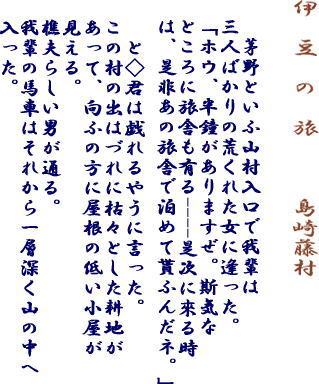 伊豆の旅　島崎藤村
茅野といふ山村入口で我輩は
三人ばかりの荒くれた女に逢った。
「ホウ、半鐘がありますぜ。斯気な
ところに旅舎も有る――是次に來る時
は、是非あの旅舎で泊めて貰ふんだネ。」
と◇君は戯れるやうに言った。
この村の出はづれに枯々とした耕地が
あって、向ふの方に屋根の低い小屋が
見える。
樵夫らしい男が通る。
我輩の馬車はそれから一層深く山の中へ
入った。